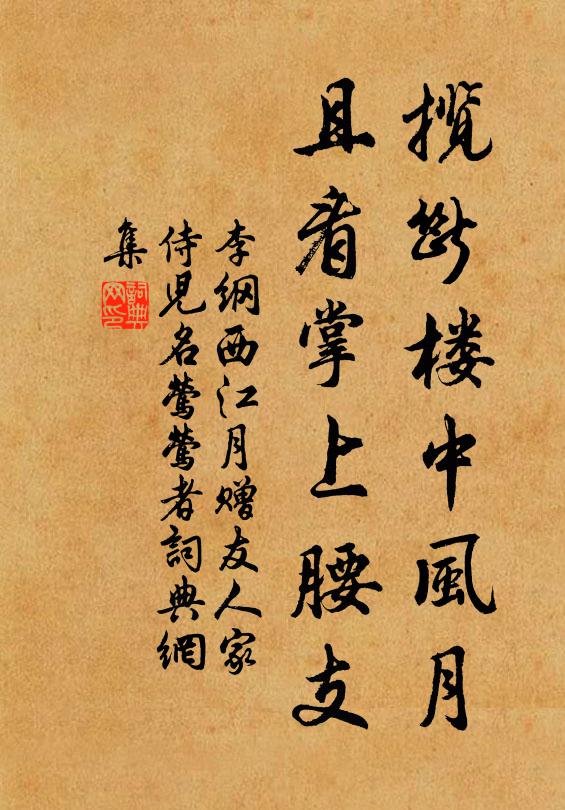 揽断楼中風月
且看掌上腰支
李綱西江月贈友人家
侍兒名鶯鶯者詞典網
集
詞典网印